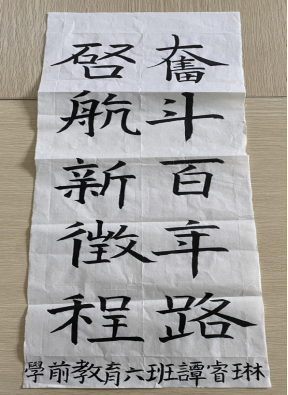 奮斗百年路
啓航新徵程
學前教育六班譚睿琳